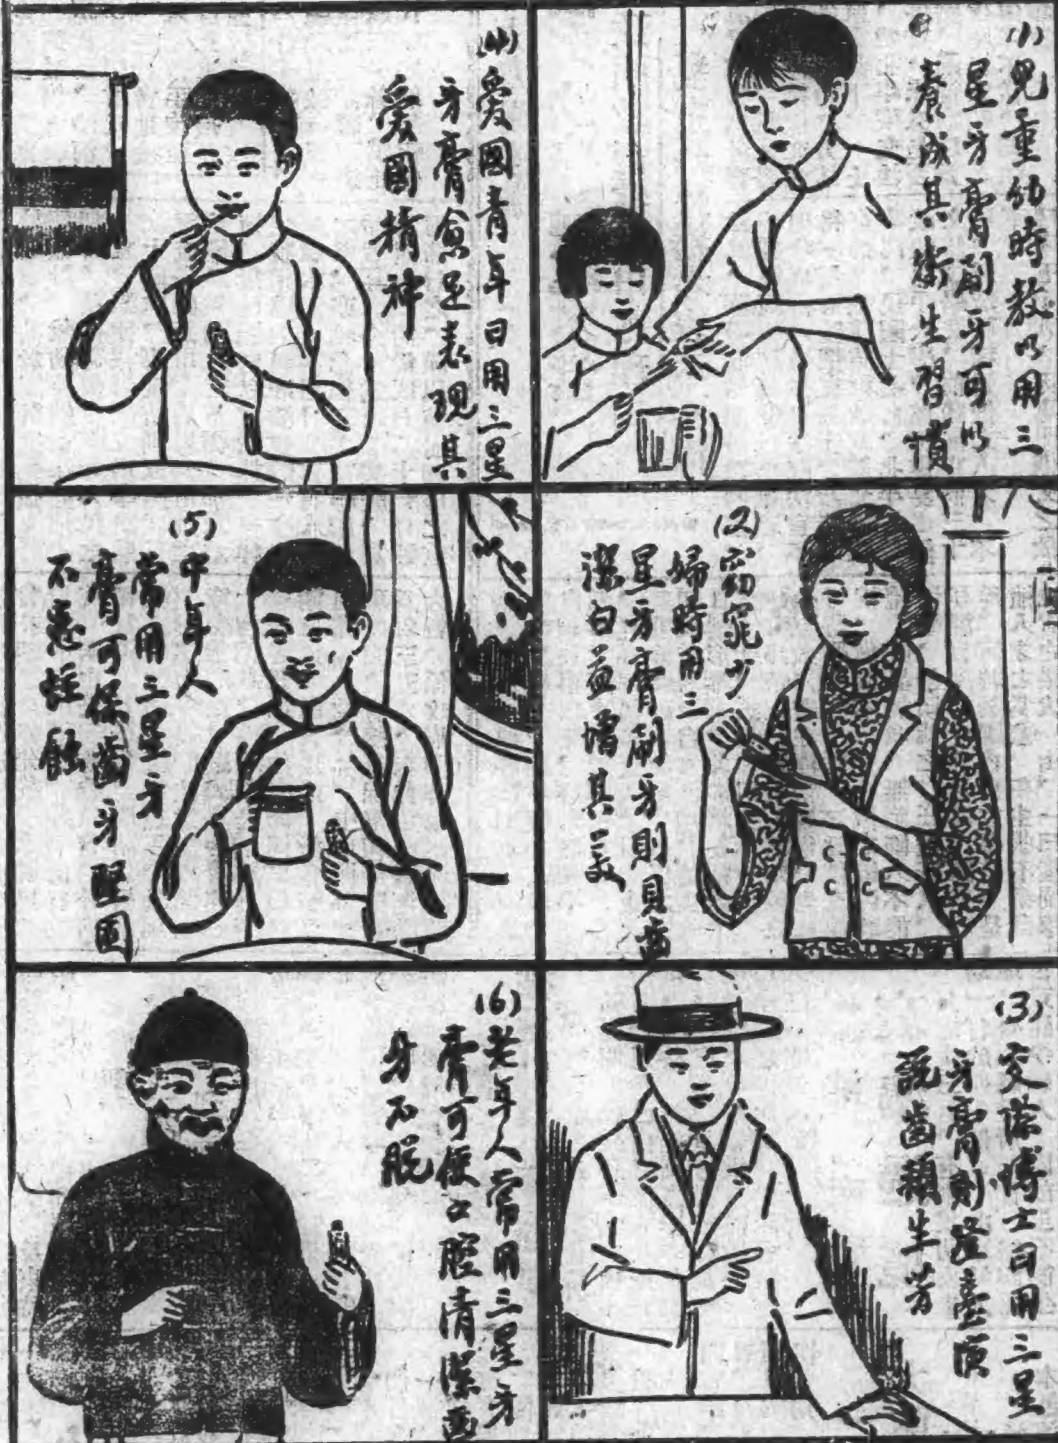 (1) 兒童幼時教以用三
星牙膏刷牙可以
養成其衛生習慣
(2) 窈窕少
婦時用三
星牙膏刷牙則貝齒
潔白益增其美
(3) 交際博士日用三星
牙膏則登臺演
說齒頰生芳
(4) 愛國青年日用三星
牙膏愈足表現其
愛國精神
(5) 中年人
常用三星牙
膏可保齒牙堅固
不患蛀蝕
(6) 老年人常用三星牙
膏可使口腔清潔齒
牙不脫